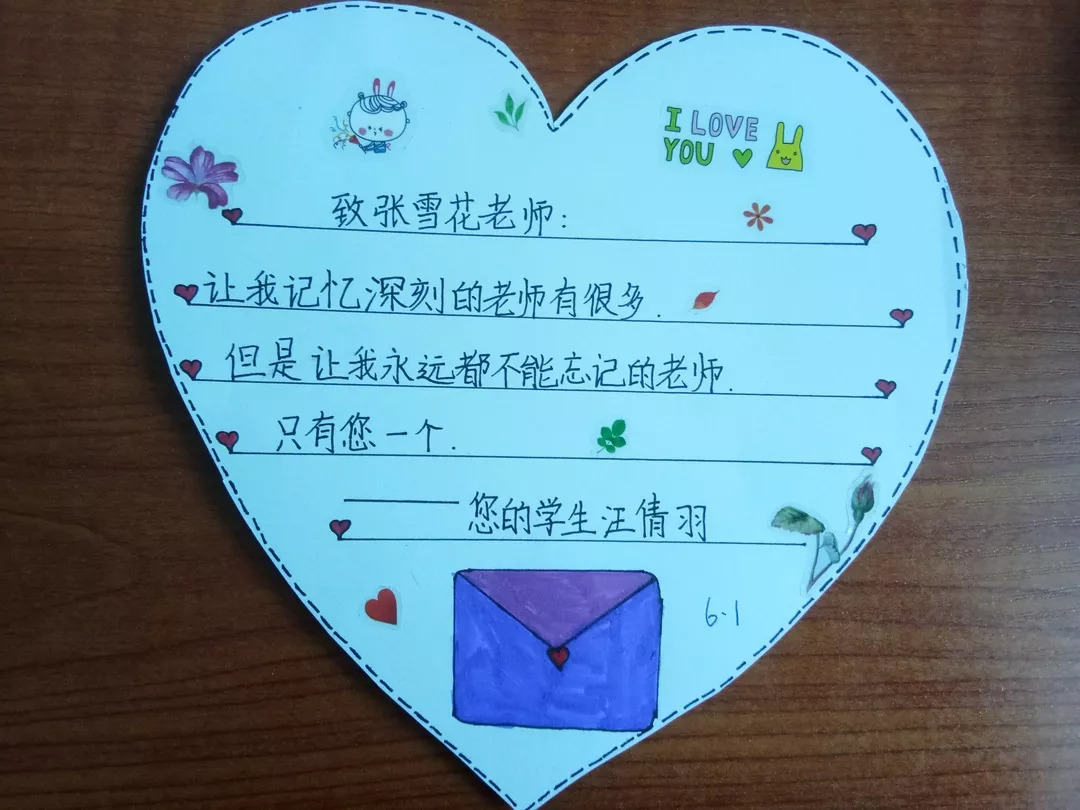 I LOVE
YOU
致张雪花老师:
让我记忆深刻的老师有很多.
但是让我永远都不能忘记的老师.
只有您一个.
——您的学生汪倩羽
6.1